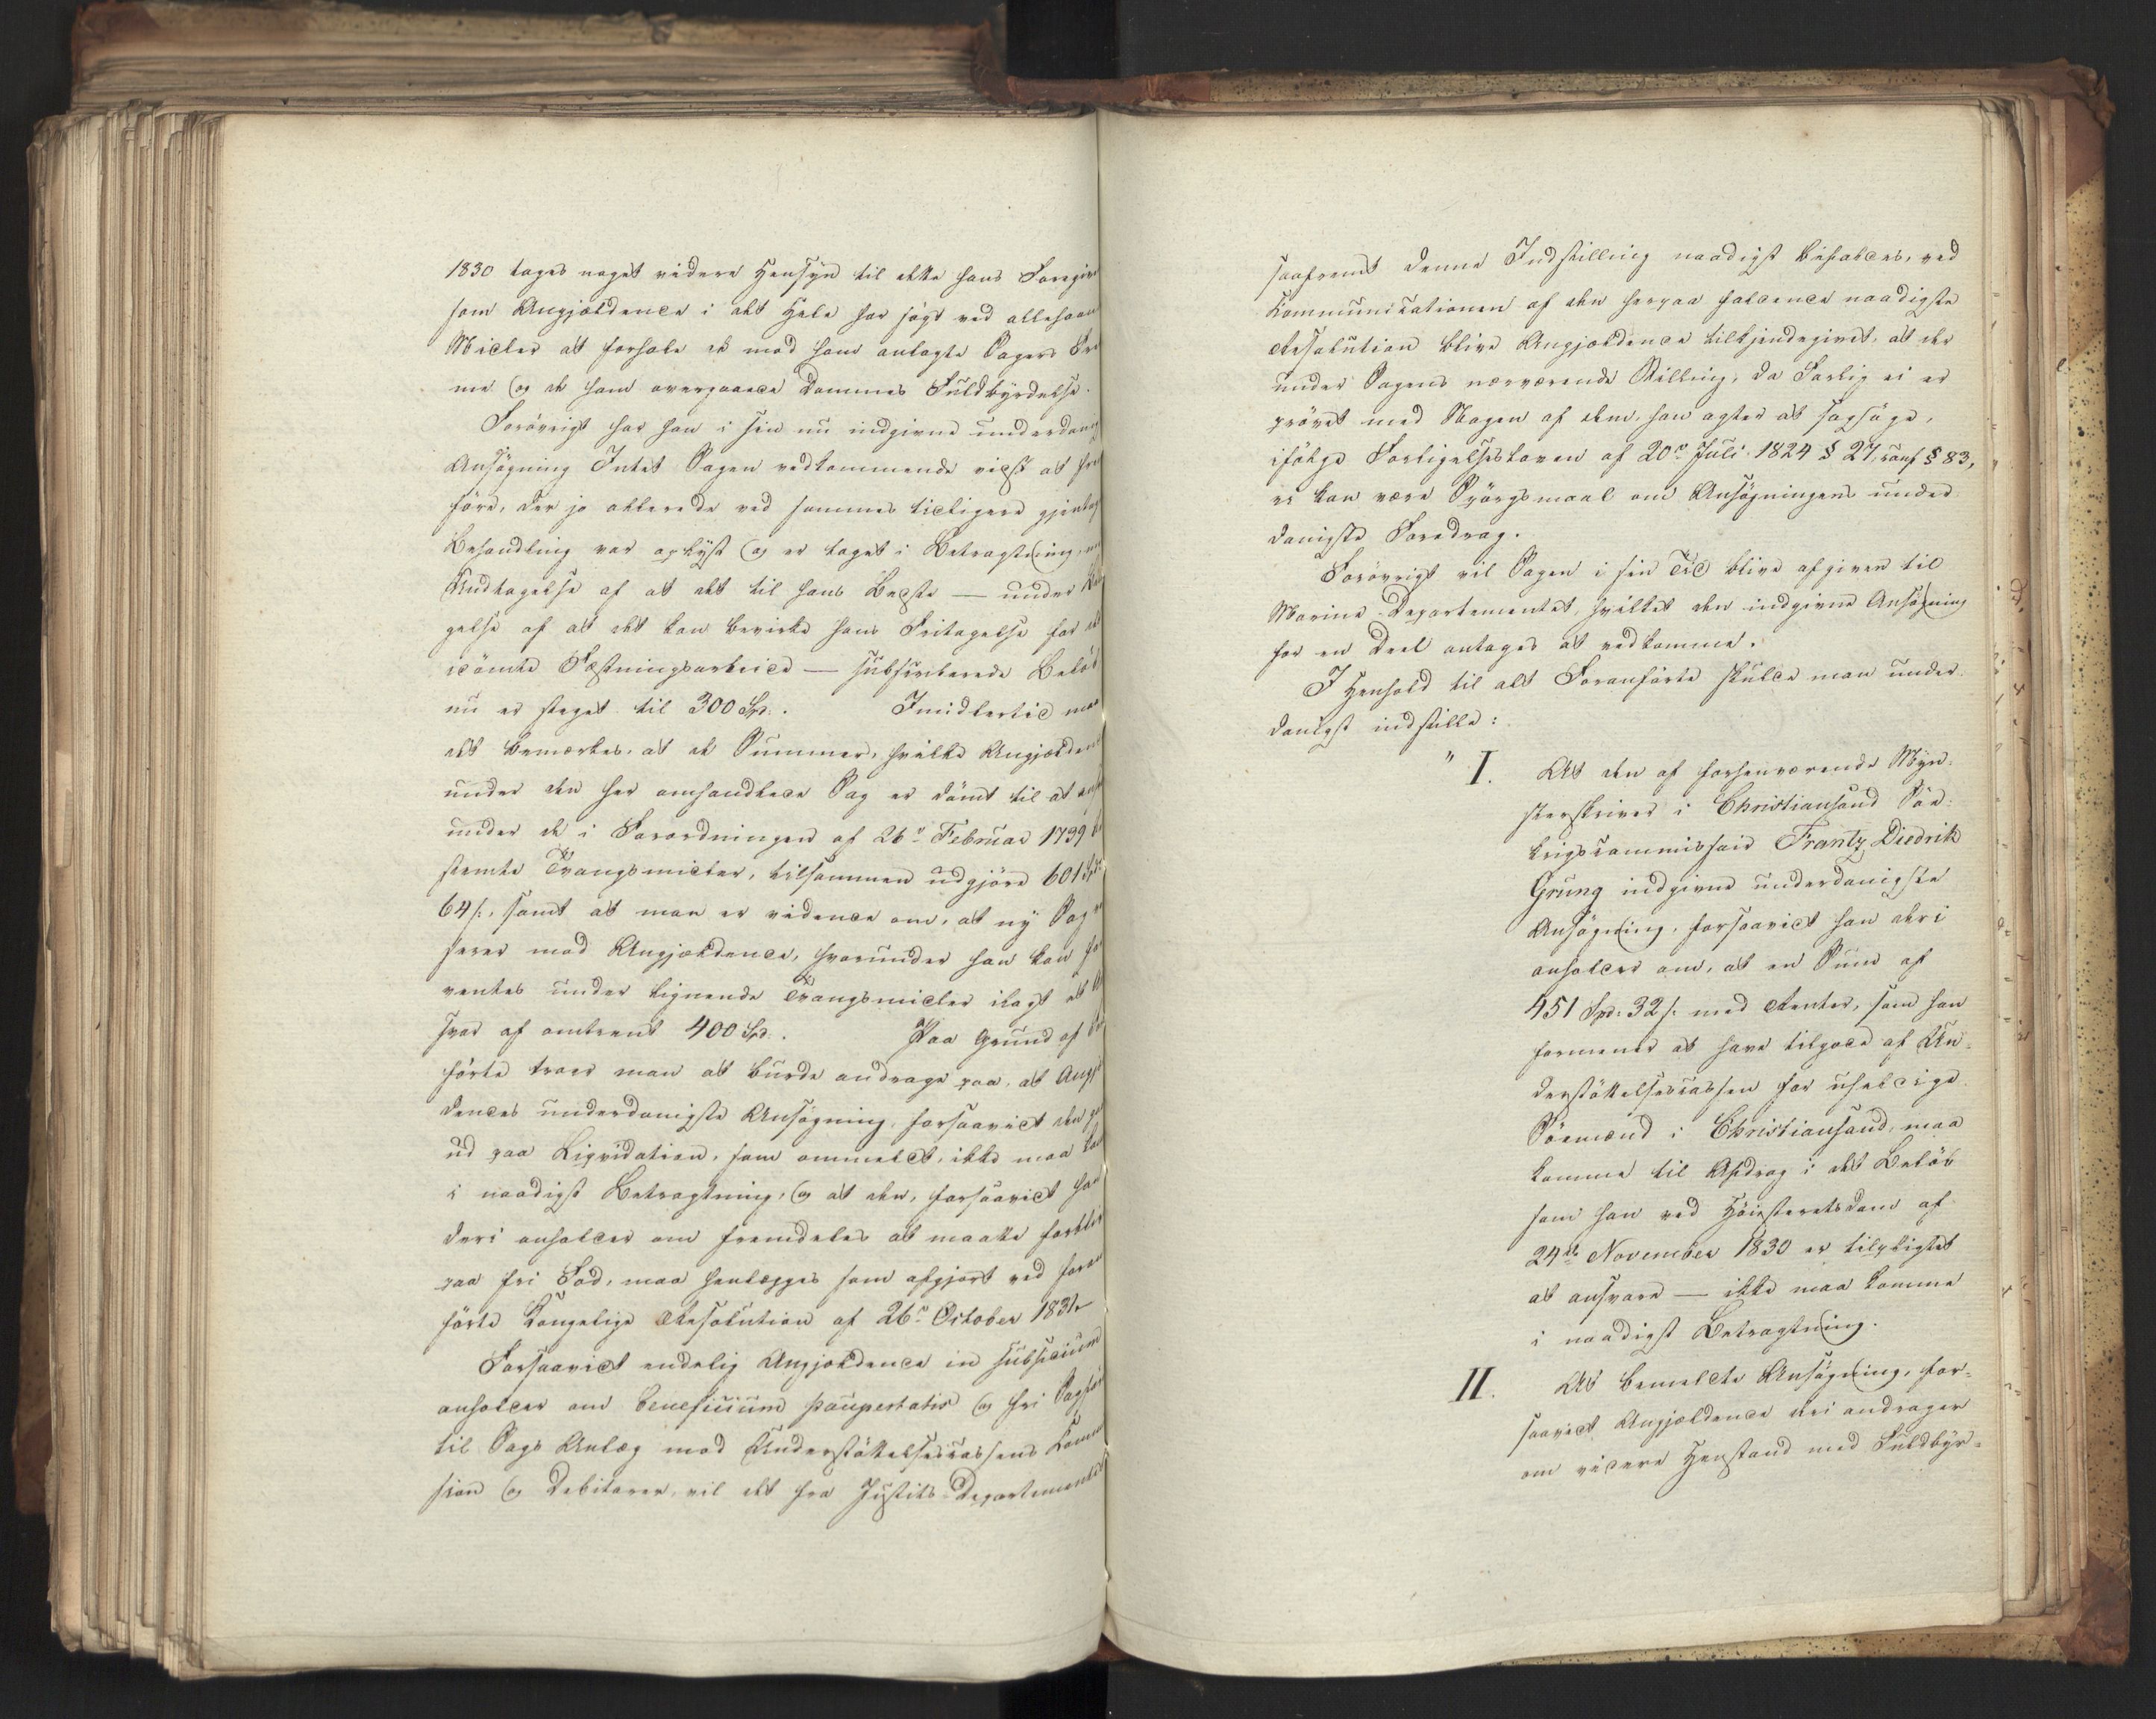 1830 tages noget videre Hensyn til dette hans Foregiv
som Angjældende i det Hele har søgt ved allehaan
Midler at forhale de mod ham anlagte Sagers Fre
me og de ham overgaaede Dommes Fuldbyrdelse.
Forøvrigt har han i sin nu indgivne underdanig
Ansøgning Intet Sagen vedkommende vidst at frem
føre, der jo allerede ved sammes tidligere gjentag
Behandling var oplyst og er taget i Betragtning, med
Undtagelse af at det til hans Bedste — under
gelse af at det kan bevirke hans Fritagelse for det
idømte Fæstningsarbeide — subscriberede Beløb
nu er steget til 300 Spd. Imidlertid maa
det bemærkes, at de Summer, hvilke Angjældende
under den her omhandlede Sag er dømt til at
under de i Forordningen af 26de Februar 1799 be
stemte Tvangsmidler, tilsammen udgjøre 601 Spd:
64 s., samt at man er vidende om, at ny Sag
serer mod Angjældende, hvorunder han kan for
ventes under lignende Tvangsmidler ilagt at
svar af omtrent 400 Spd. Paa Grund af
førte troer man at burde andrage paa, at Angjæl
dendes underdanigste Ansøgning, forsaavidt den gaar
ud paa Liqvidation, som ommeldt, ikke maa kom
i naadigst Betragtning, og at den, forsaavidt han
deri anholder om fremdeles at maatte forblive
paa fri Fod, maa henlægges som afgjort ved foran
førte Kongelige Resolution af 26de October 1831.
Forsaavidt endelig Angjældende in subsidium
anholder om beneficium paupertatis og fri Sagfør
til Sags Anlæg mod Understøttelsescassens Commis
sion og Debitorer, vil det fra Justits-Departementet
saafremt denne Indstilling naadigst bifaldes, ved
Communicationen af den herpaa faldende naadigste
Resolution blive Angjældende tilkjendegivet, at der
under Sagens nærværende Stilling, da Forlig ei er
prøvet med Nogen af dem, han agter at sagsøge,
ifølge Forligelsesloven af 20de Juli 1824 § 27, conf § 83,
ei kan være Spørgsmaal om Ansøgningens under
danigste Foredrag.
Forøvrigt vil Sagen i sin Tid blive afgiven til
Marine-Departementet, hvilket den indgivne Ansøgning
for en Deel antages at vedkomme.
I Henhold til alt Foranførte skulde man under
danigst indstille:
" I. At den af forhenværende Myn-
sterskriver i Christiansand Søe-
krigscommissair Frantz Diedrik
Grung indgivne underdanigste
Ansøgning, forsaavidt han deri
anholder om, at en Sum af
451 Spd: 32 s. med Renter, som han
formener at have tilgode af Un-
derstøttelsescassen for uheldige
Sømænd i Christiansand, maa
komme til Afdrag i det Beløb
som han ved Høiesteretsdom af
24de November 1830 er tilpligtet
at ansvare — ikke maa komme
i naadigst Betragtning.
II. At bemeldte Ansøgning, for-
saavidt Angjældende deri andrager
om videre Henstand med Fuldbyr-